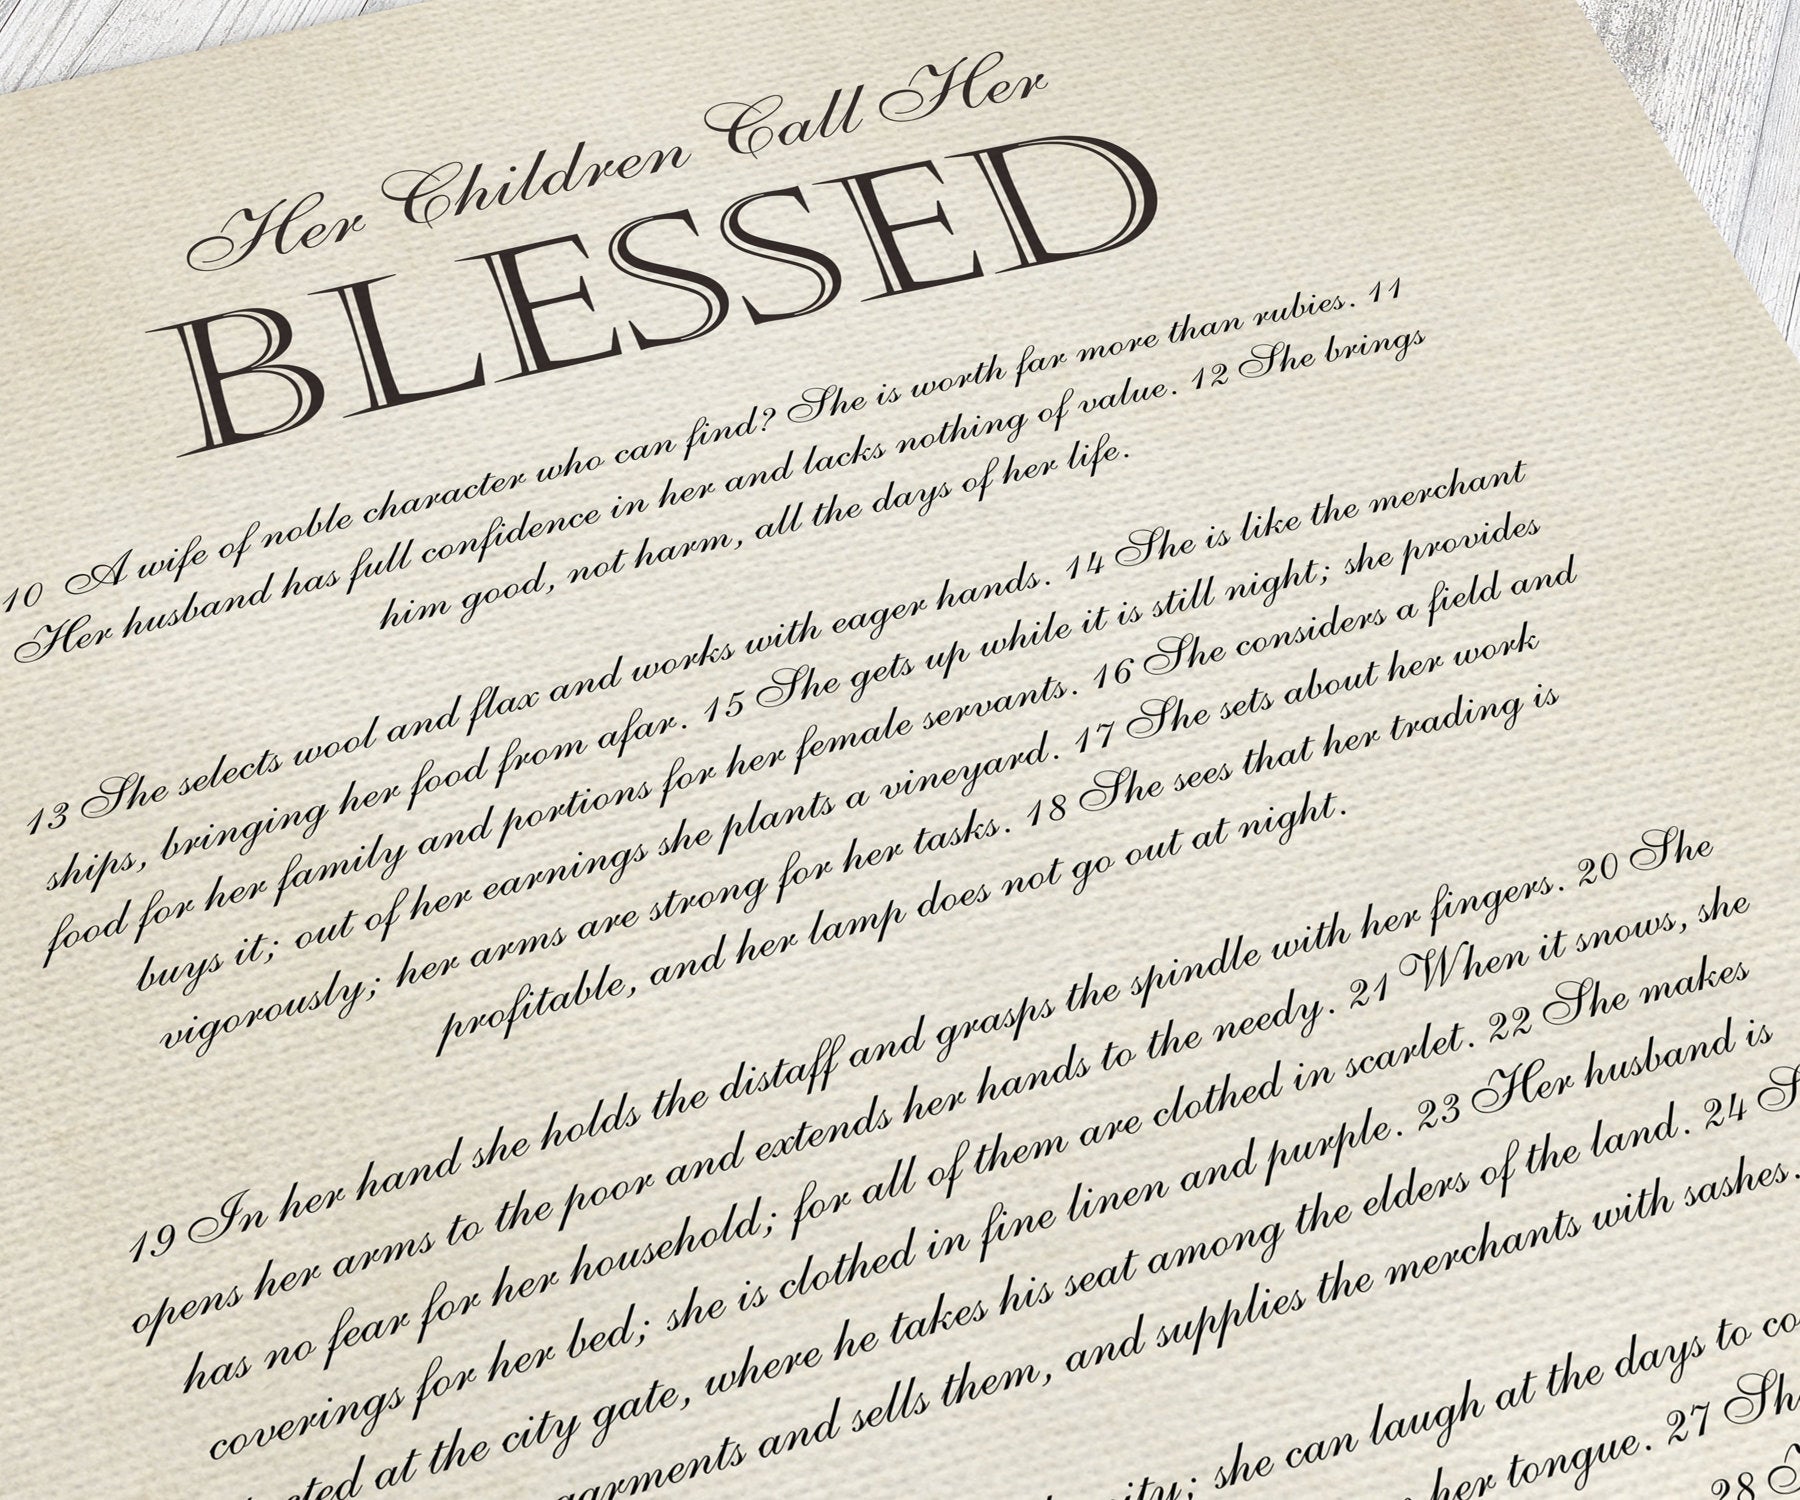 Her Children Call Her
BLESSED
10 A wife of noble character who can find? She is worth far more than rubies. 11
Her husband has full confidence in her and lacks nothing of value. 12 She brings
him good, not harm, all the days of her life.
13 She selects wool and flax and works with eager hands. 14 She is like the merchant
ships, bringing her food from afar. 15 She gets up while it is still night; she provides
food for her family and portions for her female servants. 16 She considers a field and
buys it; out of her earnings she plants a vineyard. 17 She sets about her work
vigorously; her arms are strong for her tasks. 18 She sees that her trading is
profitable, and her lamp does not go out at night.
19 In her hand she holds the distaff and grasps the spindle with her fingers. 20 She
opens her arms to the poor and extends her hands to the needy. 21 When it snows, she
has no fear for her household; for all of them are clothed in scarlet. 22 She makes
coverings for her bed; she is clothed in fine linen and purple. 23 Her husband is
at the city gate, where he takes his seat among the elders of the land. 24
garments and sells them, and supplies the merchants with sashes.
she can laugh at the days to
her tongue. 27
28